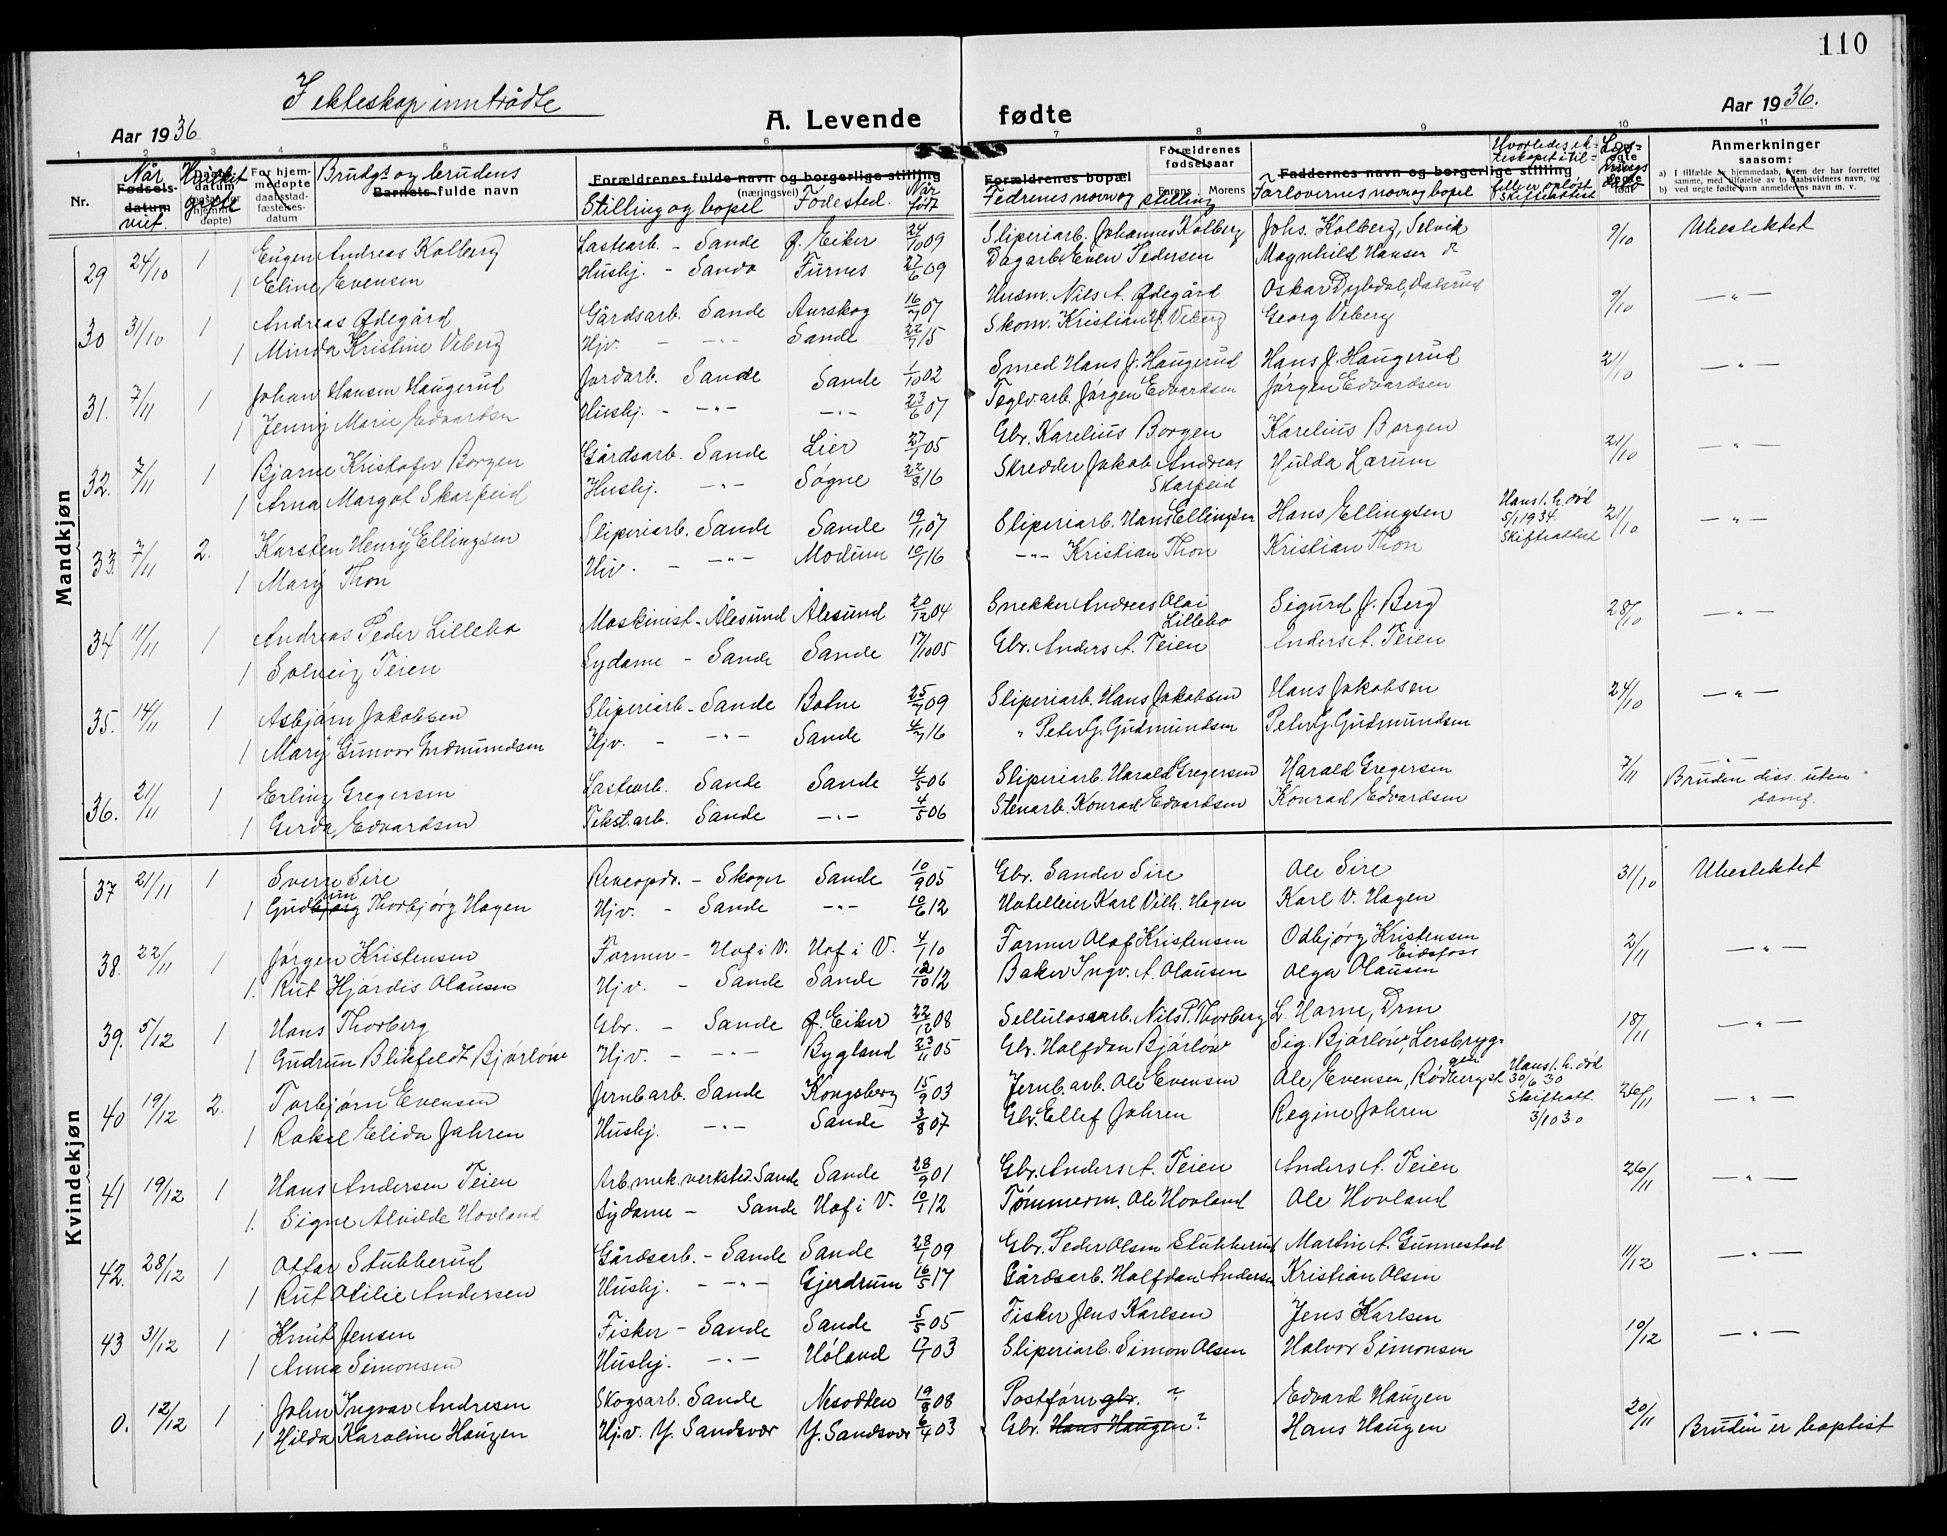 110
I ekteskap inntrådte
Aar 1936
A. Levende fødte
Aar 1936.
1 2 3 4 5 6 7 8 9 10 11
Nr.
Når viet
Fødsels-datum
Hvilket gifte
For hjemmedøpte daabsstadfæstelses-datum
Brudg. og brudens
Barnets fulde navn
Forældrenes fulde navn og borgerlige stilling
(næringsvei)
Stilling og bopel Fødested. Når født
Forældrenes bopæl
Fedrenes navn og stilling
Forældrenes fødselsaar
Farens Morens
Faddernes navn og borgerlige stilling
Forlovernes navn og bopel
Lysnings dato
Anmerkninger
saasom:
a) I tilfælde av hjemmedaab, hvem der har forrettet samme, med tilføielse av to daabsvidners navn, og
b) ved uegte født barn anmelderens navn m. v.
Mandkjøn
29 24/10 1 Eugen Andreas Kolberg Lastearb. - Sande Ø. Eiker 24/10 09 Sliperiarb. Johannes Kolberg Johs. Kolberg, Selvik 9/10 Ubeslektet
1 Eline Evensen Hushj. - Sande Furnes 27/6 09 Dagarb. Even Pedersen Magnhild Hansen
30 31/10 1 Andreas Ødegård Gårdsarb. Sande Aurskog 16/7 07 Husm. Nils A. Ødegård Oskar Dybdal, Dalsrud 9/10 — " —
1 Minda Kristine Viberg Hjv. - - " - Sande 22/7 15 Skom. Kristian Viberg Georg Viberg
31. 7/11 1 Johan Hansen Haugerud Jordarb. Sande Sande 1/10 02 Smed Hans J. Haugerud Hans J. Haugerud 21/10 — " —
1 Jenny Marie Edvardsen Hushj. - - " - - " - 23/6 07 Teglv.arb. Jørgen Edvardsen Jørgen Edvardsen
32. 7/11 1 Bjarne Kristofer Borgen Gårdsarb. Sande Lier 27/1 05 Gbr. Karelius Borgen Karelius Borgen 21/10 — " —
1 Arna Margot Skarpeid Hushj. - " - Søgne 22/8 16 Skredder Jakob Andreas Skarpeid Hulda Larum
33. 7/11 2. Karsten Henry Ellingsen Sliperiarb. Sande Sande 19/1 07 Sliperiarb. Hans Ellingsen Hans Ellingsen Hans 1. h. død 5/1 1934. Skifteattest 21/10 — " —
1 Mary Thon Hjv. - - " - Modum 10/1 16 - " - Kristian Thon Kristian Thon
34 11/11 1 Andreas Peder Lillebo Maskinist - Ålesund Ålesund 20/12 04 Snekker Andreas Olai Lillebo Sigurd J. Berg 28/10 — " —
1 Solveig Teien Sydame - Sande Sande 17/10 05 Gbr. Anders A. Teien Anders A. Teien
35. 14/11 1 Asbjørn Jakobsen Sliperiarb - Sande Botne 25/7 09 Sliperiarb. Hans Jakobsen Hans Jakobsen 24/10 — " —
1 Mary Gunvor Gudmundsen Hjv. - - " - Sande 4/7 16 " Peter G. Gudmundsen Peter G. Gudmundsen
36. 21/11 1 Erling Gregersen Lastearb. Sande Sande 4/5 06 Sliperiarb. Harald Gregersen Harald Gregersen 7/11 — " —
1 Gerda Edvardsen Tekst.arb. Sande - " - 4/5 06 Stenarb. Konrad Edvardsen Konrad Edvardsen Bruden diss. uten samf.
Kvindekjøn
37 21/11 1 Sverre Sire Reveopdr. - Skoger Sande 10/9 05 Gbr. Sander Sire Ole Sire 31/10 Ubeslektet
1 Gudbjørg run Thorbjørg Hagen Hjv. - Sande - " - 10/6 12 Hotelleier Karl Vilh. Hagen Karl V. Hagen
38. 22/11 1 Jørgen Kristensen Former - Hof i V. Hof i V. 4/1 10 Former Olaf Kristensen Odbjørg Kristensen Eidsfoss 2/11 — " —
1. Rut Hjørdis Olausen Hjv. - Sande Sande 12/10 12 Baker Ingv. A. Olausen Olga Olausen
39. 5/12 1 Hans Thorberg Gbr. - Sande Ø. Eiker 22/12 08 Sellulosearb. Nils P. Thorberg L. Harne, Drm 18/11 — " —
1 Gudrun Blikfeldt Bjørløw Hjv. - - " - Bygland 23/11 05 Gbr. Halfdan Bjørløw Sig. Bjørløw, Lersbryggen
40 19/12 2. Torbjørn Evensen Jernb.arb. Sande Kongsberg 15/9 03 Jernb.arb. Ole Evensen Ole Evensen, Rødberg st. Hans 1. h. død 30/6 30 Skifteatt. 3/10 30 26/11 — " —
1 Rakel Elida Jahren Hushj. - " - Sande 3/8 07 Gbr. Ellef Jahren Regine Jahren
41 19/12 1 Hans Andersen Teien Arb. mek. verksted. Sande Sande 28/9 01 Gbr. Anders A. Teien Anders A. Teien 26/11 — " —
1. Signe Alvilde Hovland Sydame - Sande Hof i V. 10/1 12 Tømmerm. Ole Hovland Ole Hovland
42. 28/12 1 Ottar Stubberud Gårdsarb. - Sande Sande 28/1 09 Gbr. Peder Olsen Stubberud Martin A. Gunnestad 11/12 — " —
1 Rut Otilie Andersen Hushj. - - " - Gjerdrum 16/5 17 Gårdsarb. Halfdan Andersen Kristian Olsen
43 31/12 1 Knut Jensen Fisker - Sande Sande 5/5 05 Fisker Jens Karlsen Jens Karlsen 10/12 — " —
1 Anna Simonsen Hushj. - " - Høland 17/7 03 Sliperiarb. Simon Olsen Halvor Simonsen
0. 12/12 1 John Ingvar Andresen Skogsarb. Sande Nesodden 19/8 08 Postførn gbr. ? Edvard Haugen 20/11 — " —
1 Hilda Karoline Haugen Hjv. Y. Sandsvær Y. Sandsvær 6/4 03 Gbr. Hans Haugen ? Hans Haugen Bruden er baptist